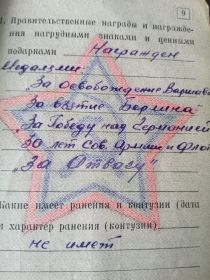 9
1. Правительственные награды и награжде-
ния нагрудными знаками и ценными
подарками Награжден
Медалями:
"За освобождение Варшавы
За взятие Берлина
"За Победу над Германией
30 лет Сов. Армии и Флота
"За Отвагу"
Какие имеет ранения и контузии (дата
и характер ранения (контузии)
не имеет